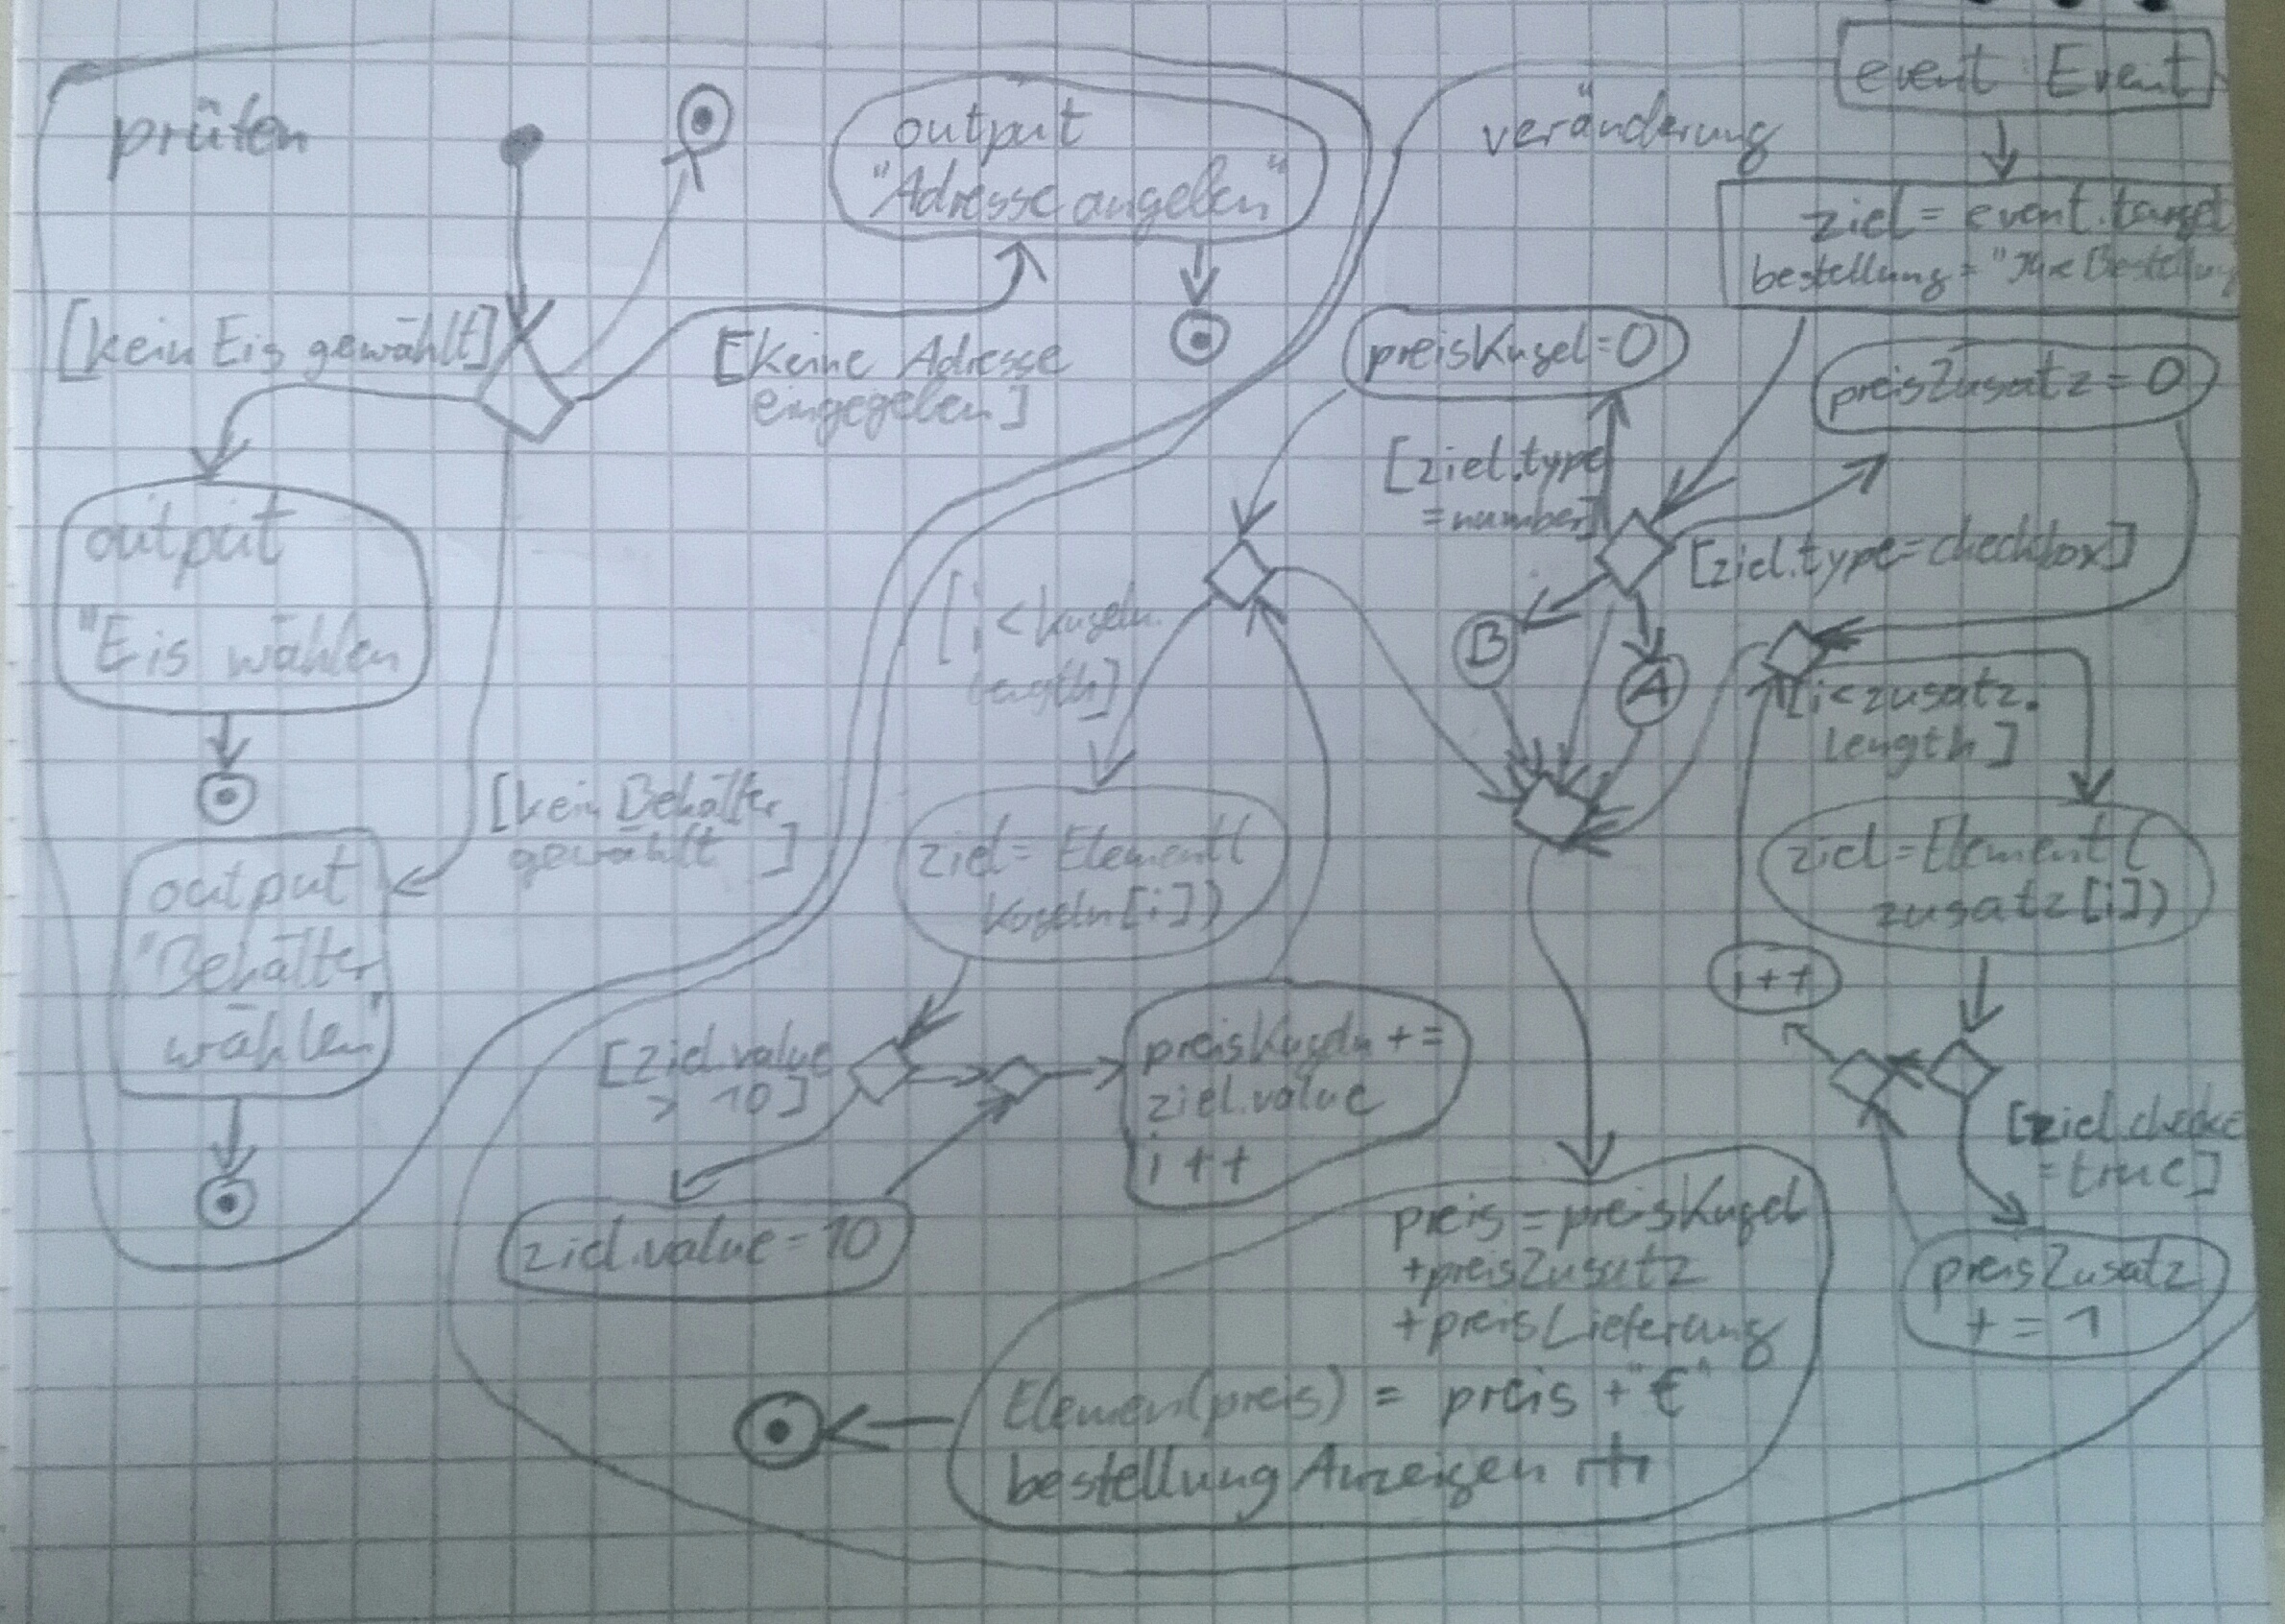 prüfen
output
"Adresse angeben"
[kein Eis gewählt]
[keine Adresse
eingegeben]
output
"Eis wählen
[kein Behälter
gewählt ]
output
"Behälter
wählen"
veränderung
event Event
ziel = event.target
bestellung = "Ihre Bestellung
preisKugel=0
preisZusatz = 0
[ziel.type
=number]
[ziel.type=checkbox]
B
A
[i < kugeln.
length]
[i<zusatz.
length]
ziel = Element(
kugeln[i])
ziel=Element(
zusatz[i])
i++
[ziel.value
> 10]
preisKugeln +=
ziel.value
i ++
ziel.value=10
[ziel.checke
=true]
preisZusatz
+ = 1
preis = preisKugel
+preisZusatz
+preisLieferung
Element(preis) = preis + "€"
bestellung Anzeigen